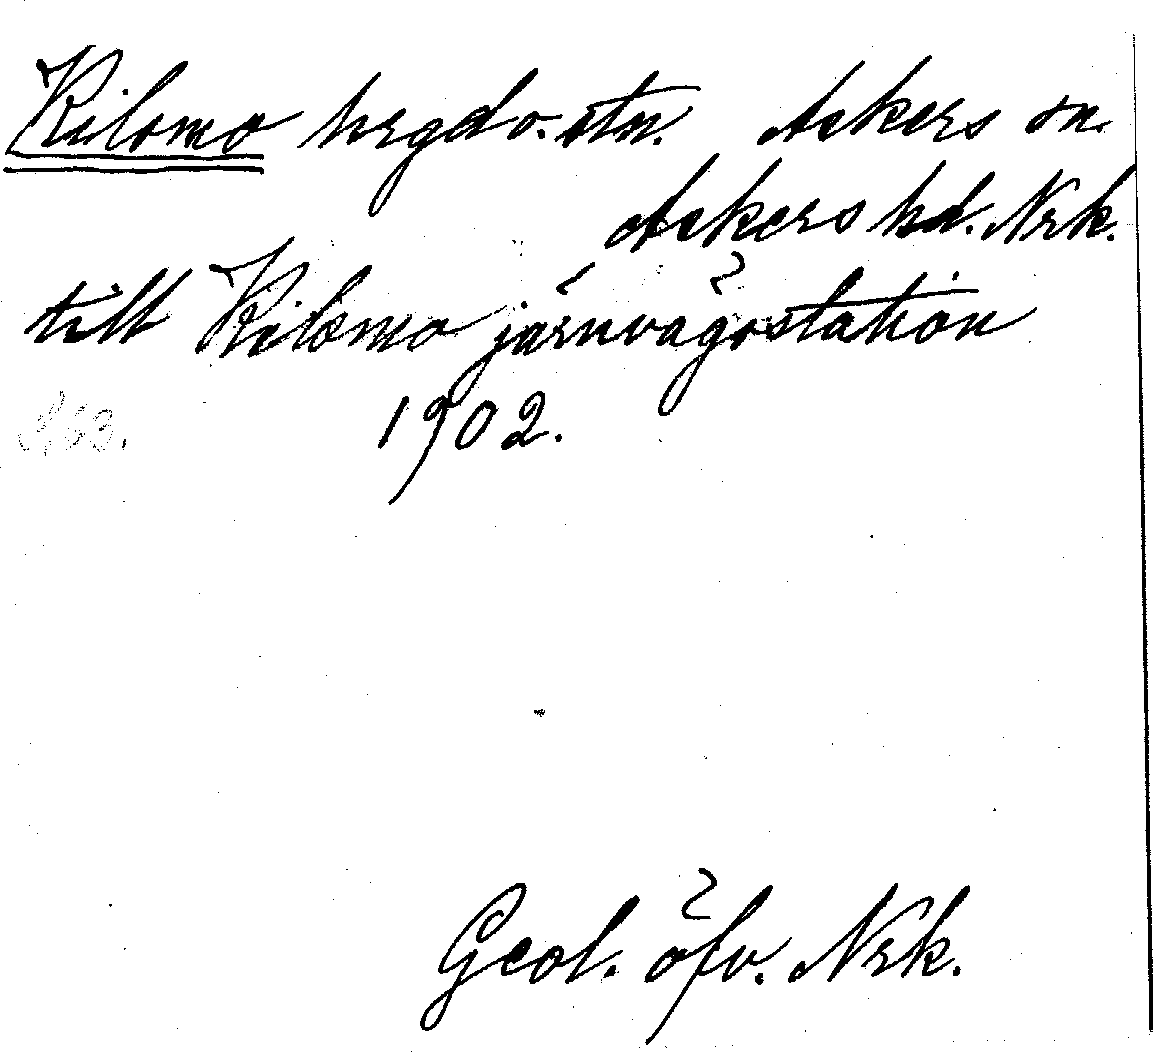 Kilsmo hrgd o. stn. Askers sn.
Askers hd. Nrk.
till Kilsmo järnvägsstation
1902.
Geol. öfv. Nrk.